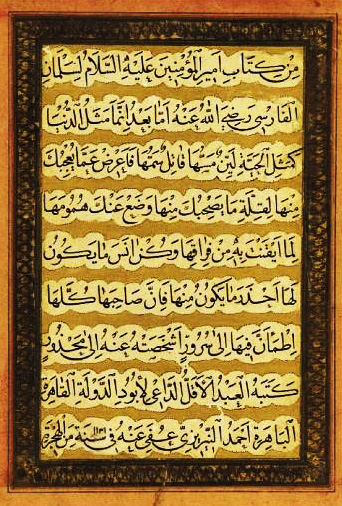 مِنْ كِتَابِ اَمِيرِ الْمُؤْمِنِينَ عَلَيْهِ السَّلَامُ لِسَلْمَانَ
الْفَارْسِىِّ رَضِىَ اللهُ عَنْهُ اَمَّا بَعْدُ اِنَّمَا مَثَلُ الدُّنْيَا
كَمَثَلِ الْحَيَّةِ لَيِّنٌ مَسُّهَا قَاتِلٌ سُمُّهَا فَاَعْرِضْ عَمَّا يُعْجِبُكَ
مِنْهَا لِقِلَّةِ مَا يَصْحَبُكَ مِنْهَا وَضَعْ عَنْكَ هُمُومَهَا
لِمَا اَيْقَنْتَ بِهِ مِنْ فِرَاقِهَا وَكُنْ اٰنَسَ مَا يَكُونُ
لَهَا اَحْذَرَ مَا يَكُونُ مِنْهَا فَاِنَّ صَاحِبَهَا كُلَّمَا
اطْمَاَنَّ فِيهَا اِلَى سُرُورٍ اَشْخَصَتْهُ عَنْهُ اِلَى مَحْذُورٍ
كَتَبَهُ الْعَبْدُ الْاَقَلُّ الدَّاعِى لِاُبُودِ الدَّوْلَةِ الْقَاهِرَةِ
الْبَاهِرَةِ اَحْمَدُ التَّبْرِيزِى عُفِىَ عَنْهُ فِى سَنَةِ مِنَ الْهِجْرَةِ